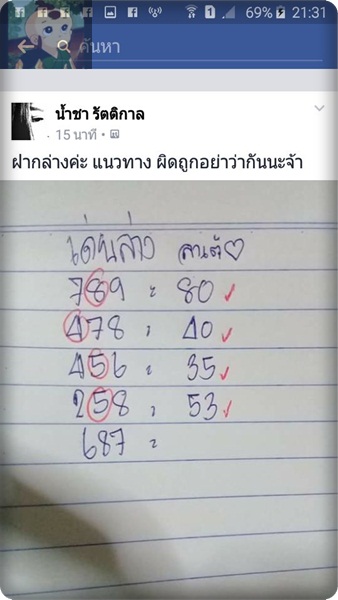 69% 21:31
ค้นหา
น้ำชา รัตติกาล
15 นาที
ฝากล่างค่ะ แนวทาง ผิดถูกอย่าว่ากันนะจ้า
เด่นล่าง
789 = 80 ✓
478 = 40 ✓
456 = 35 ✓
258 = 53 ✓
687 =